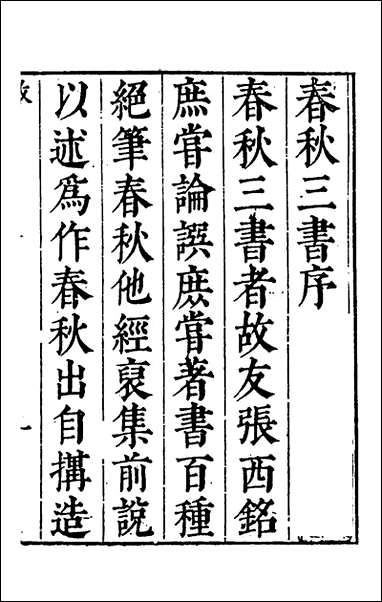 春秋三書序
春秋三書者故友張西銘
庶嘗論誤庶嘗著書百種
絕筆春秋他經裒集前說
以述爲作春秋出自搆造